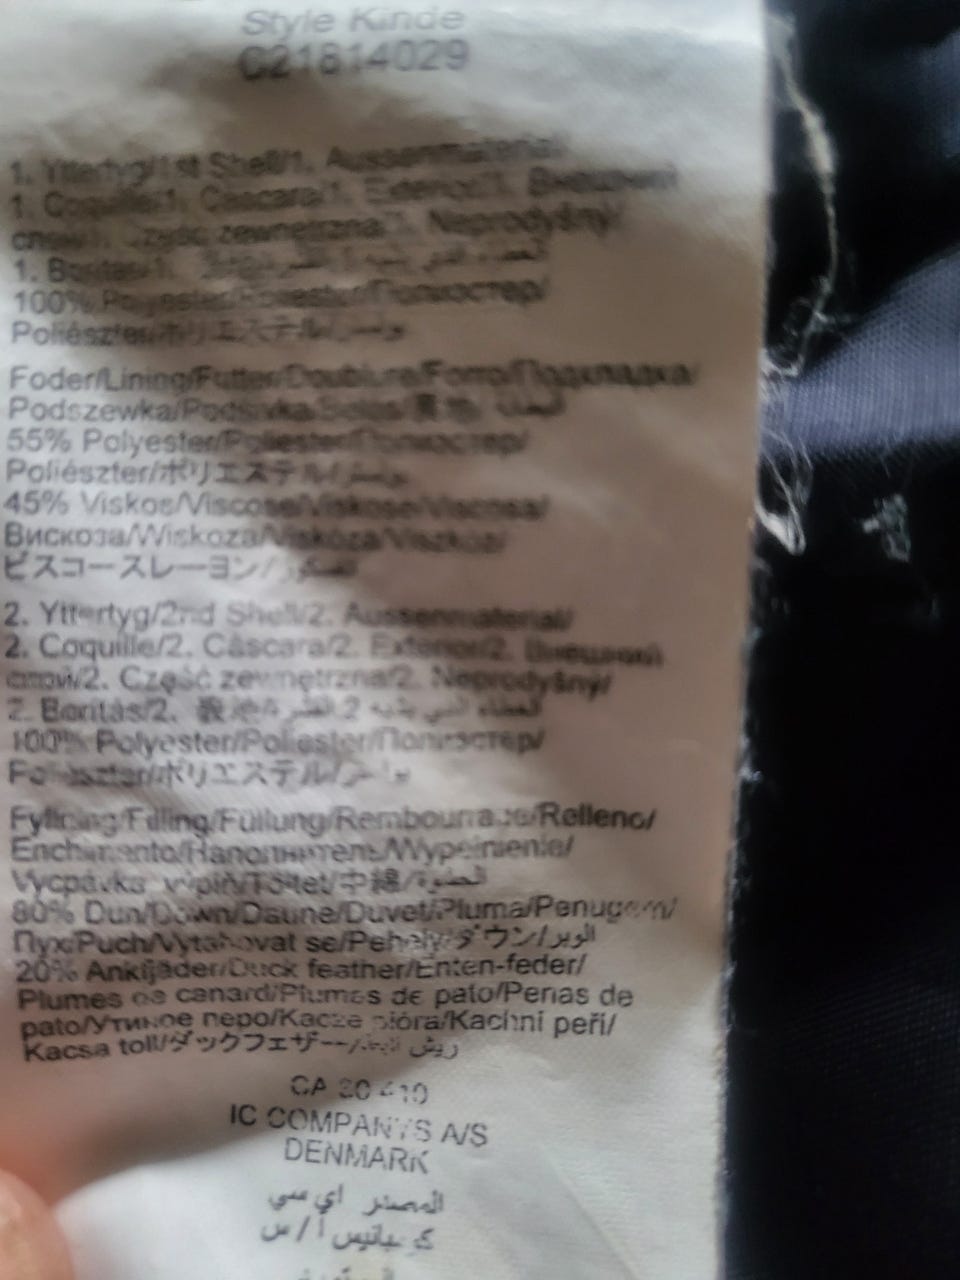 Style Kinde
C21814029
1. Yttertyg/1st Shell/1. Aussenmaterial/
1. Coquille/1. Cáscara/1. Exterior/1. Внешний
слой/1. Część zewnętrzna/1. Neprodyšný/
1. Borítás/1.
100% Polyester/Poliester/Полиэстер/
Poliészter/ポリエステル/بوليستر
Foder/Lining/Futter/Doublure/Forro/Подкладка/
Podszewka/Podšívka/Bélés/裏地/
55% Polyester/Poliester/Полиэстер/
Poliészter/ポリエステル/بوليستر
45% Viskos/Viscose/Viskose/Viscosa/
Вискоза/Wiskoza/Viskóza/Viszkóz/
ビスコースレーヨン/
2. Yttertyg/2nd Shell/2. Aussenmaterial/
2. Coquille/2. Cáscara/2. Exterior/2. Внешний
слой/2. Część zewnętrzna/2. Neprodyšný/
2. Borítás/2.
100% Polyester/Poliester/Полиэстер/
Poliészter/ポリエステル/بوليستر
Fyllning/Filling/Füllung/Rembourrage/Relleno/
Enchimento/Наполнитель/Wypełnienie/
Vycpávka výplň/Töltet/中綿/الحشوة
80% Dun/Down/Daune/Duvet/Pluma/Penugem/
Пух/Puch/Vytahovat se/Pehely/ダウン/الوبر
20% Ankfjäder/Duck feather/Enten-feder/
Plumes de canard/Plumas de pato/Penas de
pato/Утиное перо/Kacze pióra/Kachní peří/
Kacsa toll/ダックフェザー/ريش
CA
IC COMPANYS A/S
DENMARK
المصدر اي سي